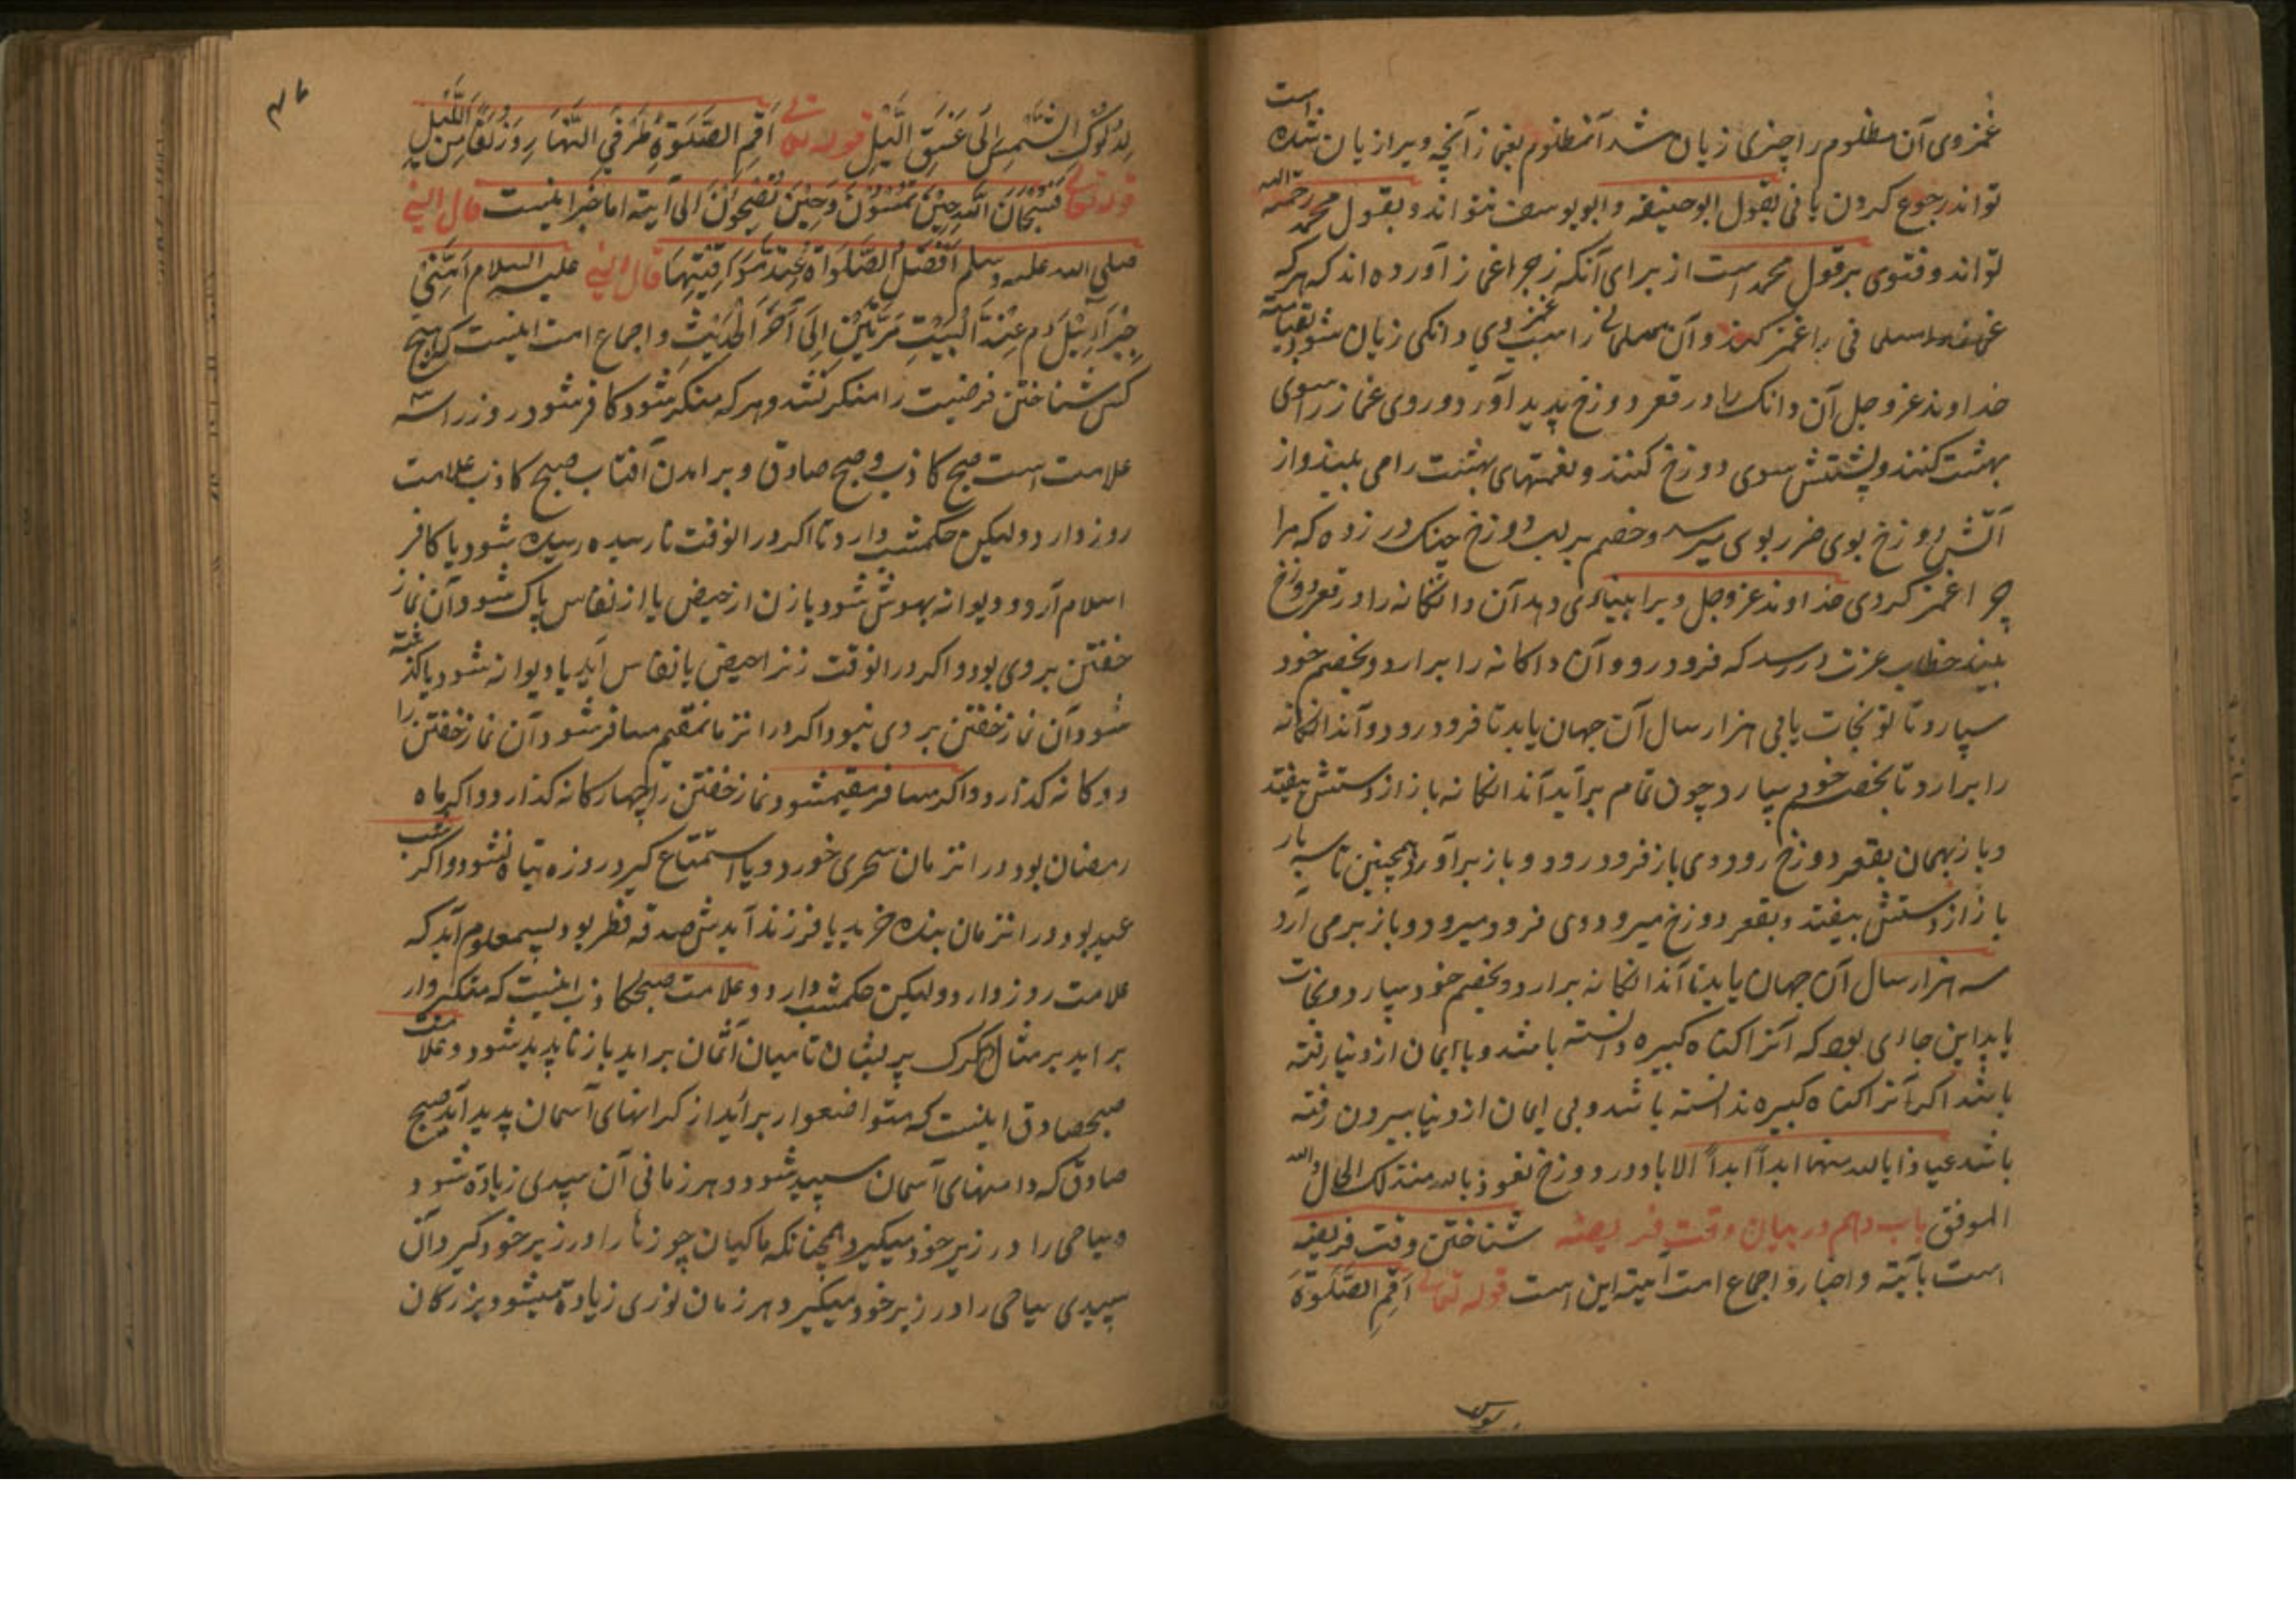 غمز وی آن مظلوم را چیزی زیان شد آنمظلوم بغماز آنچه ویرا زیان شده است
تواند رجوع کردن یا نی بقول ابو حنیفه و ابو یوسف نتواند و بقول محمد رحمه الله
تواند و فتوی بر قول محمد است از برای آنکه زجر اغماز آورده اند که هر که
را غمز کند و آن مسلمانی را سبب غمز وی دانکی زیان شود بقیامت
خداوند عز و جل آن دانک را در قعر دوزخ پدید آورد و روی غماز را سوی
بهشت کنند و پشتش سوی دوزخ کنند و نعمتهای بهشت را می بیند و از
آتش دوزخ بوی ضرر بوی میرسد و خصم بر لب دوزخ چنک در زده که مرا
چرا غمز کردی خداوند عز و جل ویرا بینائی دهد آن دانکانه را در قعر دوزخ
بیند خطاب عزت در رسد که فرود رو و آن دانکانه را برار و بخصم خود
سپار و تا تو نجات یابی هزار سال آن جهان باید تا فرود رود و آندانکانه
را برارد تا بخصم خود سپارد چون تمام برآید آندانکانه باز از دستش بیفتد
و باز بهمان بقعر دوزخ رود وی باز فرود رود و باز برآورد همچنین تا سه بار
باز از دستش بیفتد و بقعر دوزخ میرود وی فرود میرود و باز برمی آرد
سه هزار سال آن جهان باید تا آندانکانه برارد و بخصم خود سپارد و نجات
یابد این جای بود که آنرا کناه کبیره دانسته باشد و با ایمان از دنیا رفته
باشد اکر آنرا کناه کبیره ندانسته باشد و بی ایمان از دنیا بیرون رفته
باشد عیاذا بالله منها ابداً ابداً الاباد در دوزخ نعوذ بالله من ذلک الحال والله
الموفق باب دهم در بیان وقت فریضه شناختن وقت فریضه
است بآیته و اخبار و اجماع امت آیته این است قوله تعالی اَقِمِ الصَّلٰوةَ
لِدُلُوكِ الشَّمْسِ اِلَى غَسَقِ اللَّيْلِ قوله تعالی اَقِمِ الصَّلٰوةَ طَرَفَيِ النَّهَارِ وَزُلَفًا مِنَ اللَّيْلِ
قوله تعالی فَسُبْحَانَ اللهِ حِيْنَ تُمْسُوْنَ وَحِيْنَ تُصْبِحُوْنَ الی آیته اما خبر اینست قال النبی
صلی الله علیه وسلم اَفْضَلُ الصَّلَوَاةِ عِنْدَ مَوَاقِيْتِهَا قال النبی علیه السلام اَمَّنِيْ
جِبْرَآئِيْلَ عِنْدَ الْبَيْتِ مَرَّتَيْنِ اِلَى آخَرَ الْحَدِيْثِ و اجماع امت اینست که هیچ
کس شناختن فرضیت را منکر نشد و هر که منکر شود کافر شود روز را سه
علامت است صبح کاذب و صبح صادق و برامدن آفتاب صبح کاذب علامت
روز دارد ولیکن حکم شب دارد تا اکر در انوقت نارسیده رسیده شود یا کافر
اسلام آرد و دیوانه بهوش شود یا زن از حیض یا از نفاس پاک شود آن نماز
خفتن بر وی بود و اکر در انوقت زنرا حیض یا نفاس آید یا دیوانه شود یا کشته
شود آن نماز خفتن بر وی نبود و اکر در انزمان مقیم مسافر شود آن نماز خفتن را
دوکانه کذارد و اکر مسافر مقیم شود نماز خفتن را چهارکانه کذارد و اکر ماه
رمضان بود در انزمان سحری خورد و یا استمتاع کیرد روزه تباه نشود و اکر شب
عید بود در انزمان بنده خرید یا فرزند آیدش صدقه فطر بود پس معلوم آید که
علامت روز دارد ولیکن حکم شب دارد و علامت صبح کاذب اینست که متکبروار
براید بر مثال کرک پریشان تا میان آسمان براید باز ناپدید شود و علامت
صبح صادق اینست که متواضعوار برآید از کرانهای آسمان پدید آید صبح
صادق که دامنهای آسمان سپید شود و هر زمانی آن سپیدی زیاده شود
و سیاهی را در زیر خود میکیرد همچنانکه ماکیان چوزها را در زیر خود کیرد آن
سپیدی سیاهی را در زیر خود میکیرد هر زمان نوری زیاده میشود بزرکان